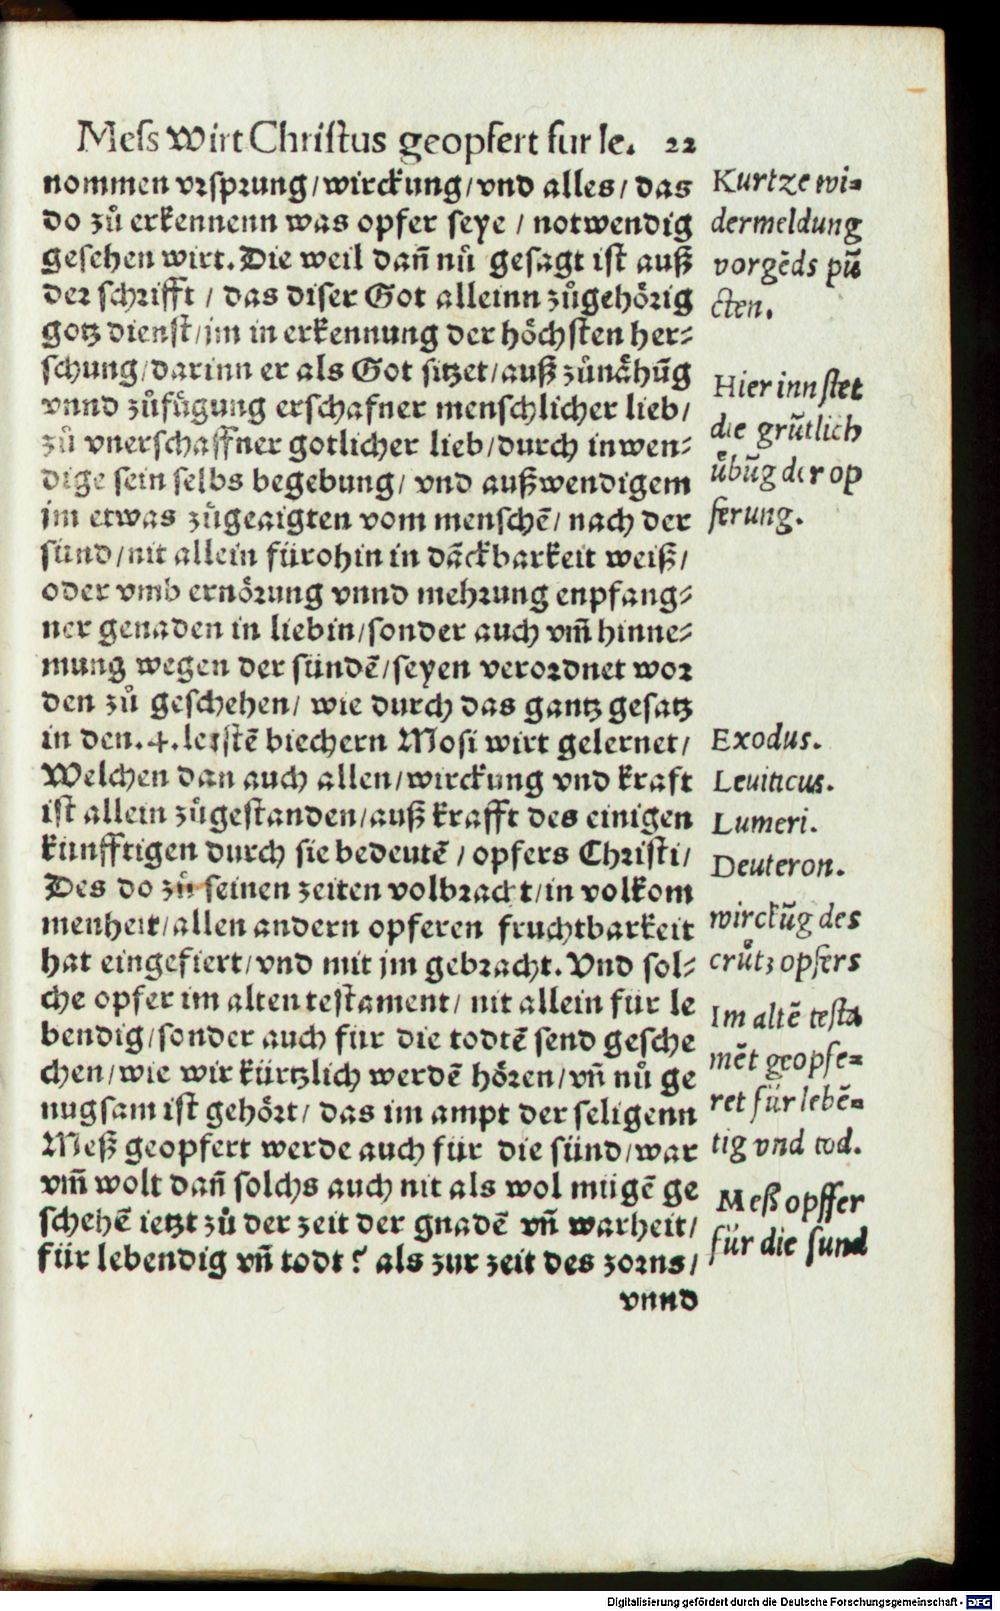 Mess wirt Christus geopfert fur le. 22
nommen vrsprung/wirckung/vnd alles/ das
do zů erkennenn was opfer seye / notwendig
gesehen wirt. Die weil dañ nů gesagt ist auß
der schrifft / das diser Got alleinn zůgehörig
gotz dienst/im in erkennung der höchsten her⸗
schung/darinn er als Got sitzet/auß zůnåhũg
vnnd zůfůgung erschafner menschlicher lieb/
zů vnerschaffner gotlicher lieb/durch inwen⸗
dige sein selbs begebung/ vnd außwendigem
im etwas zůgeaigten vom menschē/ nach der
sünd/nit allein fürohin in dãckbarkeit weiß/
oder vmb ernörung vnnd mehrung enpfang⸗
ner genaden in liebin/sonder auch vm̃ hinne⸗
mung wegen der sündē/seyen verordnet wor
den zů geschehen/ wie durch das gantz gesatz
in den.4.letstē biechern Mosi wirt gelernet/
Welchen dan auch allen/wirckung vnd kraft
ist allein zůgestanden/auß krafft des einigen
künfftigen durch sie bedeutē / opfers Christi/
Des do zů seinen zeiten volbracht/in volkom
menheit/allen andern opferen fruchtbarkeit
hat eingefiert/vnd mit jm gebracht. Vnd sol⸗
che opfer im alten testament/ nit allein für le
bendig/sonder auch für die todtē send gesche
chen/wie wir kürtzlich werdē hören/vñ nů ge
nugsam ist gehört/ das im ampt der seligenn
Meß geopfert werde auch für die sünd/war
vm̃ wolt dañ solchs auch nit als wol mügē ge
schehē ietzt zů der zeit der gnadē vñ warheit/
für lebendig vñ todt? als zur zeit des zorns/
vnnd
Kurtze wi⸗
dermeldung
vorgēds pũ
cten.
Hier inn stet
die grũtlich
übũg der op
ferung.
Exodus.
Leuiticus.
Lumeri.
Deuteron.
wirckũg des
crůtz opfers
Im altē testa
mēt geopfe⸗
ret für lebē⸗
tig vnd tod.
Meß opffer
für die sund
Digitalisierung gefördert durch die Deutsche Forschungsgemeinschaft - DFG